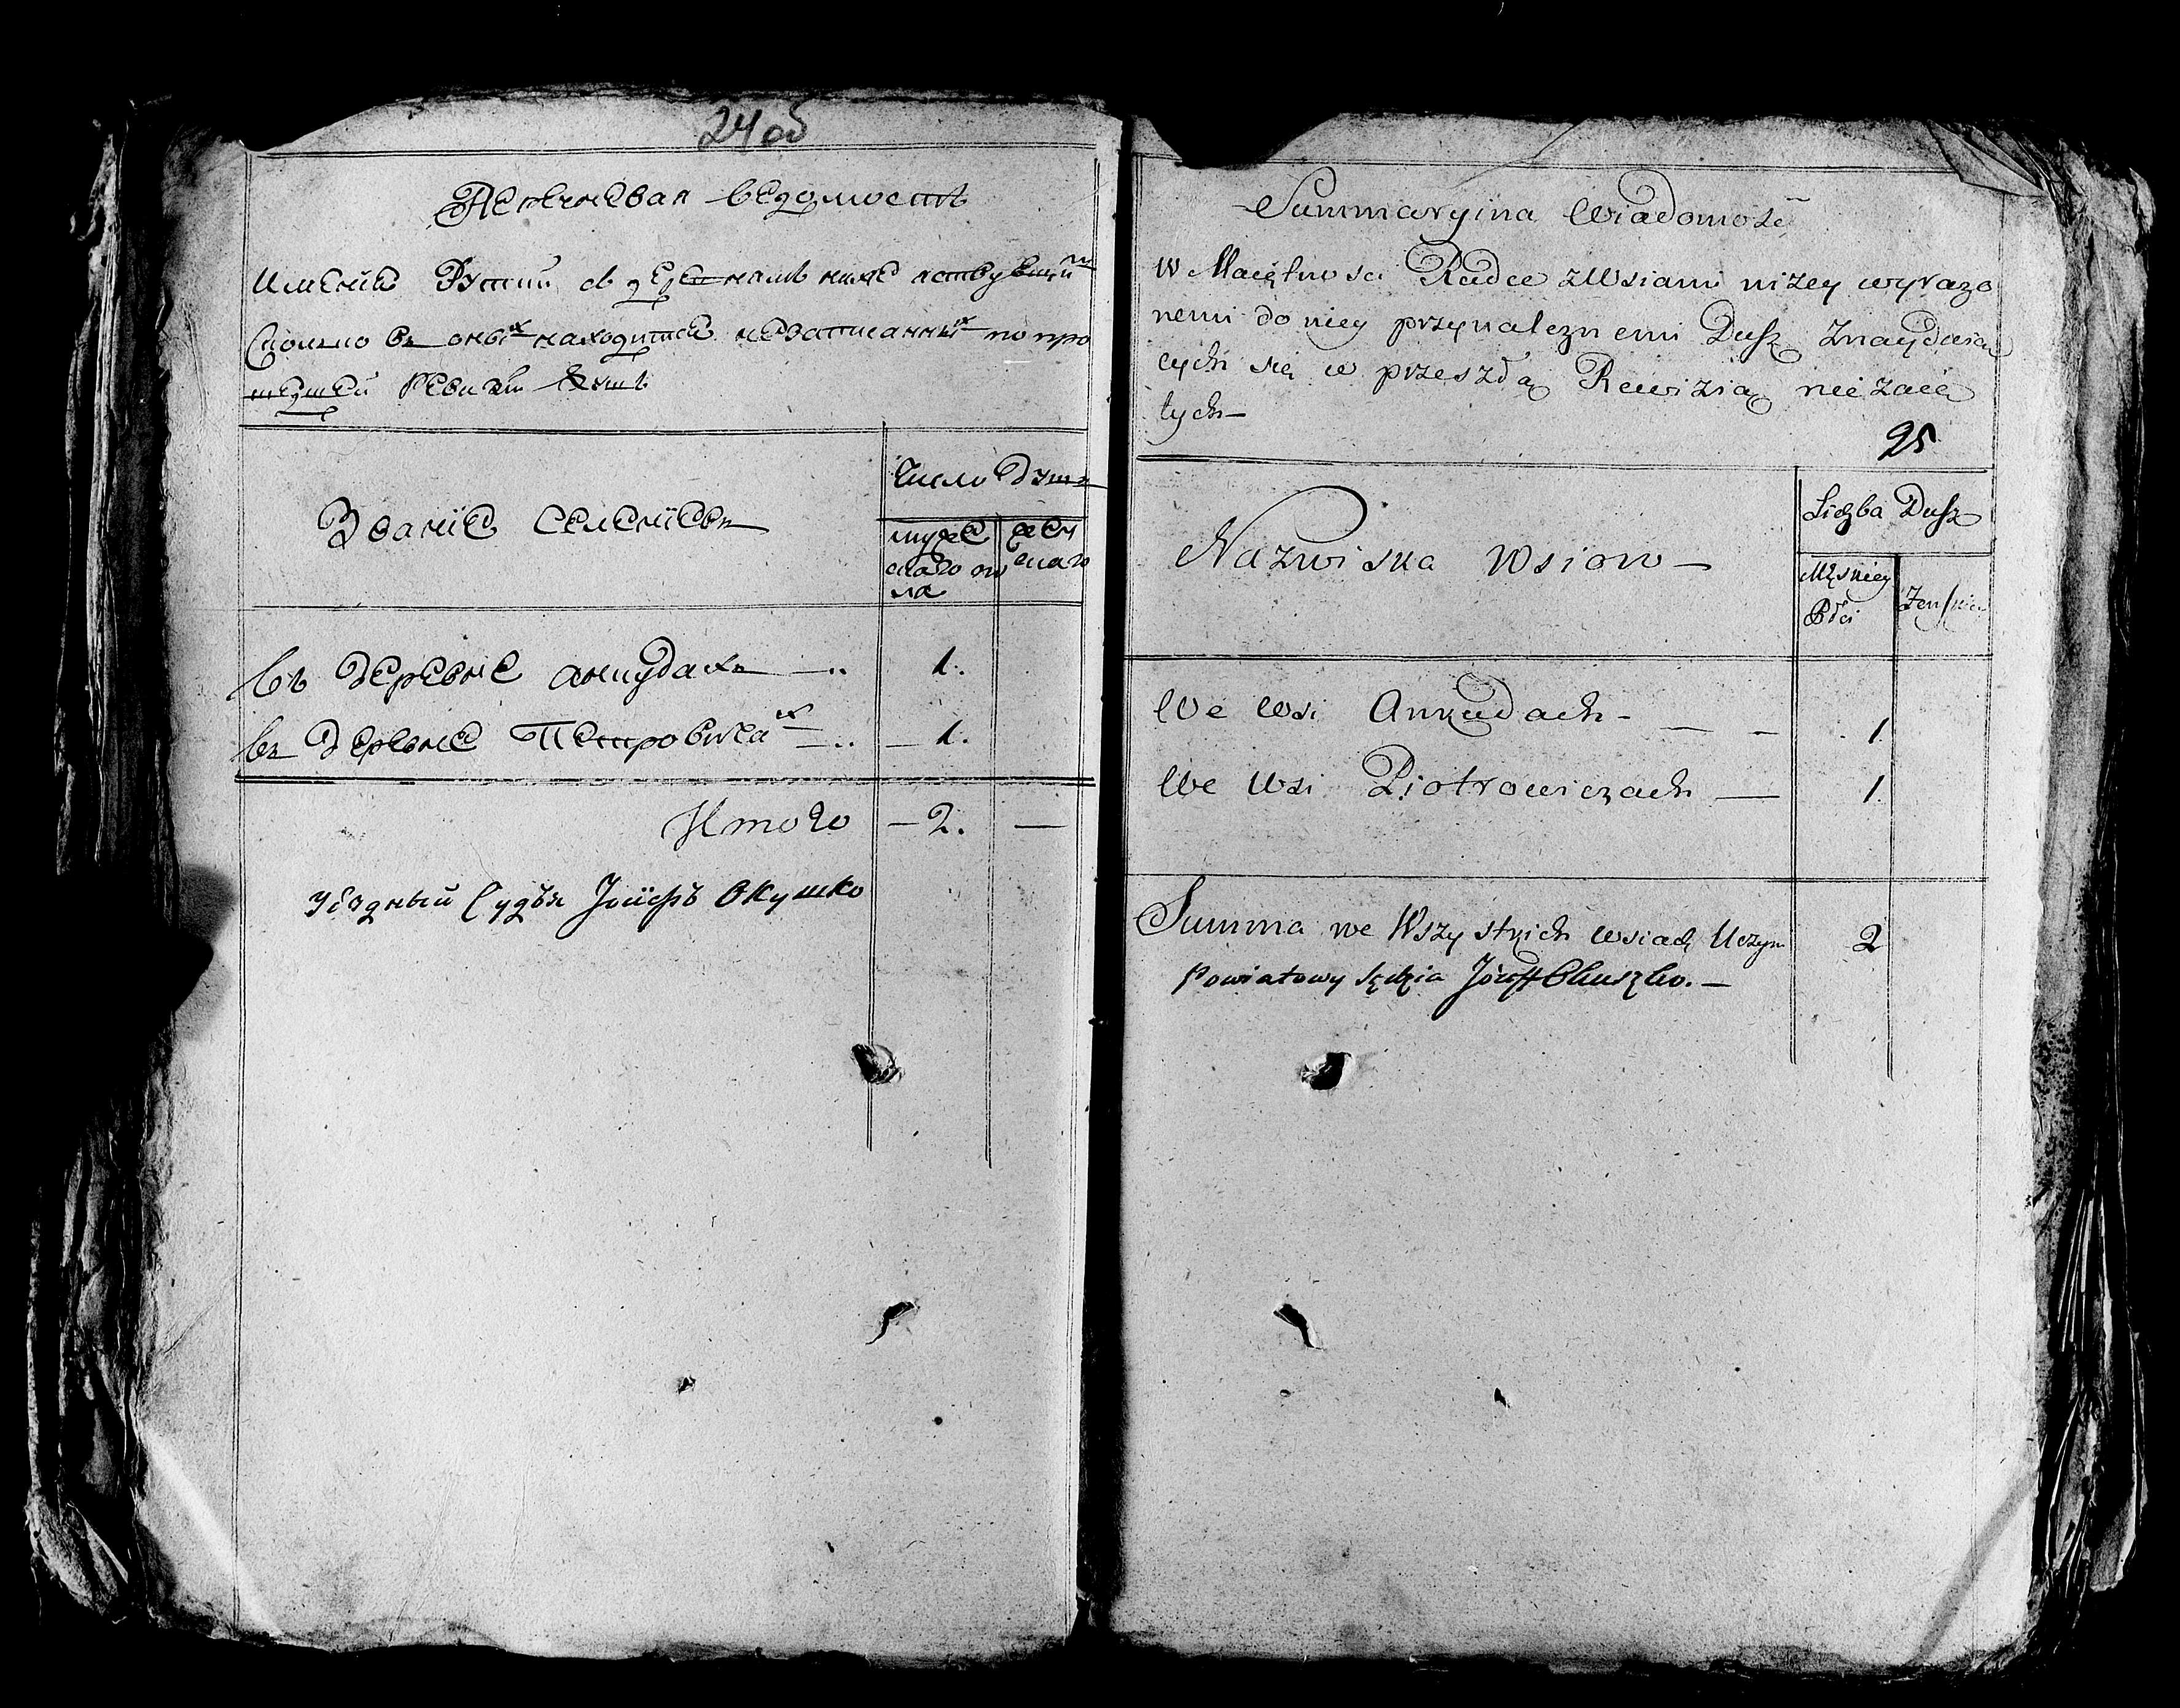 24 об
Перечневая ведомость
Имения съ ниже
Сколько въ оныхъ находится незаписанныхъ по про
шедшей Ревизіи душъ
Званіе селеніевъ
Число душъ
мужес
каго по
ла
жен
скаго
въ деревне анкудахъ 1.
въ деревне Петровичахъ 1.
Итого — 2. —
Уездный Судья Іосифъ Окушко
Summaryina Wiadomość
W Maiętnosci Rudce z Wsiami niżey wyrażo
nemi do niey przynależnemi Dusz Znayduią
cych się w przeszłą Rewizią nie zaię
tych —
25
Nazwiska wsiow —
Liczba Dusz
Męskiey
Płci
Zenskiey
We wsi Ankudach — — 1.
We wsi Piotrowiczach — 1.
Summa we Wszystkich wsiach Uczyn 2
Powiatowy sędzia Józeff Okuszko. —